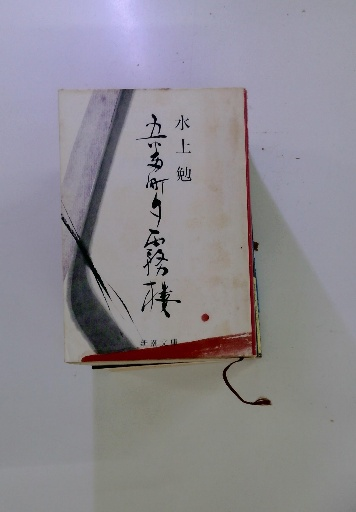 水上勉
五番町夕霧楼
新潮文庫